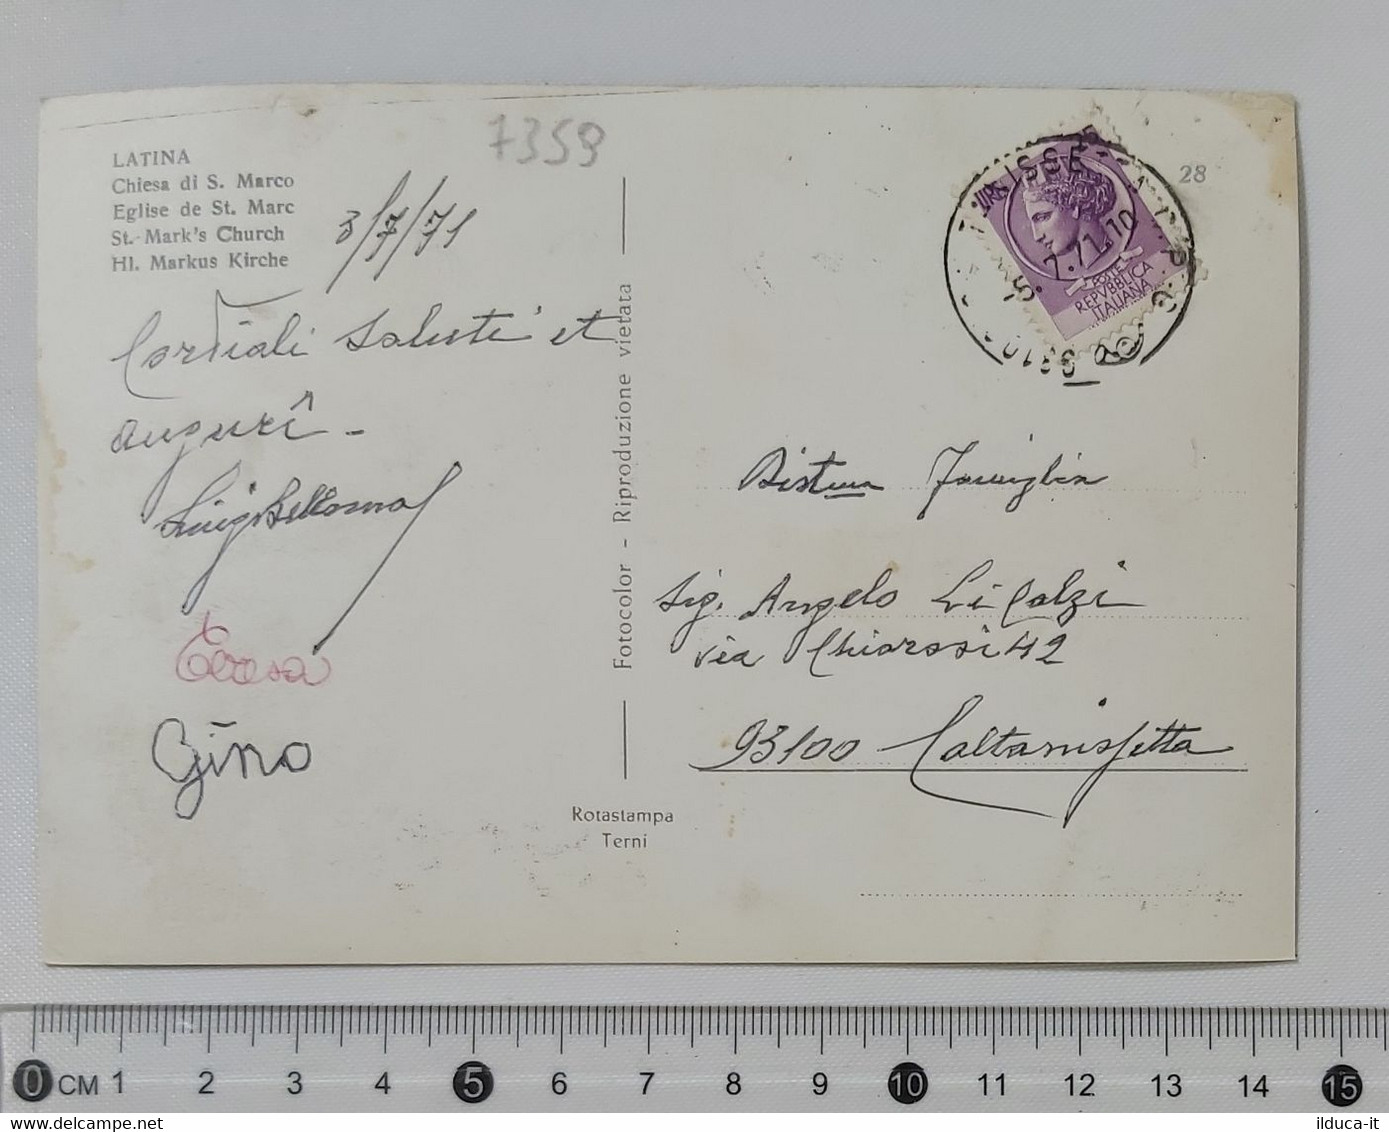 7359
LATINA
Chiesa di S. Marco
Eglise de St. Marc
St. Mark's Church
Hl. Markus Kirche
3/7/71
Cordiali saluti et
auguri -
Luigi Bellomo
Teresa
Gino
Fotocolor - Riproduzione vietata
Rotastampa
Terni
28
25
LIRE
POSTE
REPUBBLICA
ITALIANA
5.7.71.10
Distinta Famiglia
Sig. Angelo Li Calzi
via Chiarossi 42
93100 Caltanissetta
0 CM 1 2 3 4 5 6 7 8 9 10 11 12 13 14 15
ilduca-it